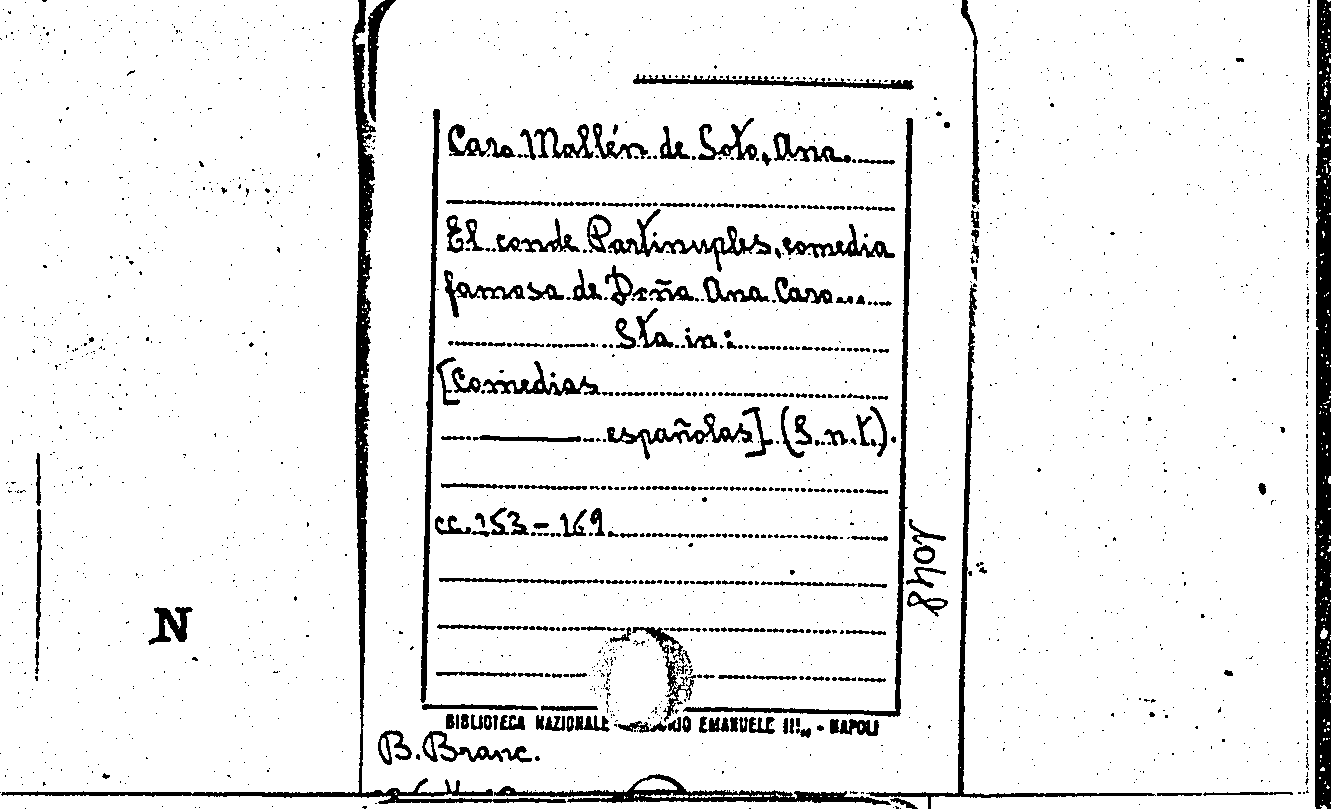 Caro Mallén de Soto, Ana.
El conde Partinuples, comedia
famosa de Doña Ana Caro...
Sta in:
[Comedias
españolas]. (S.n.t.).
cc. 153-169.
1048
N
BIBLIOTECA NAZIONALE EMANUELE III„ - NAPOLI
B. Branc.